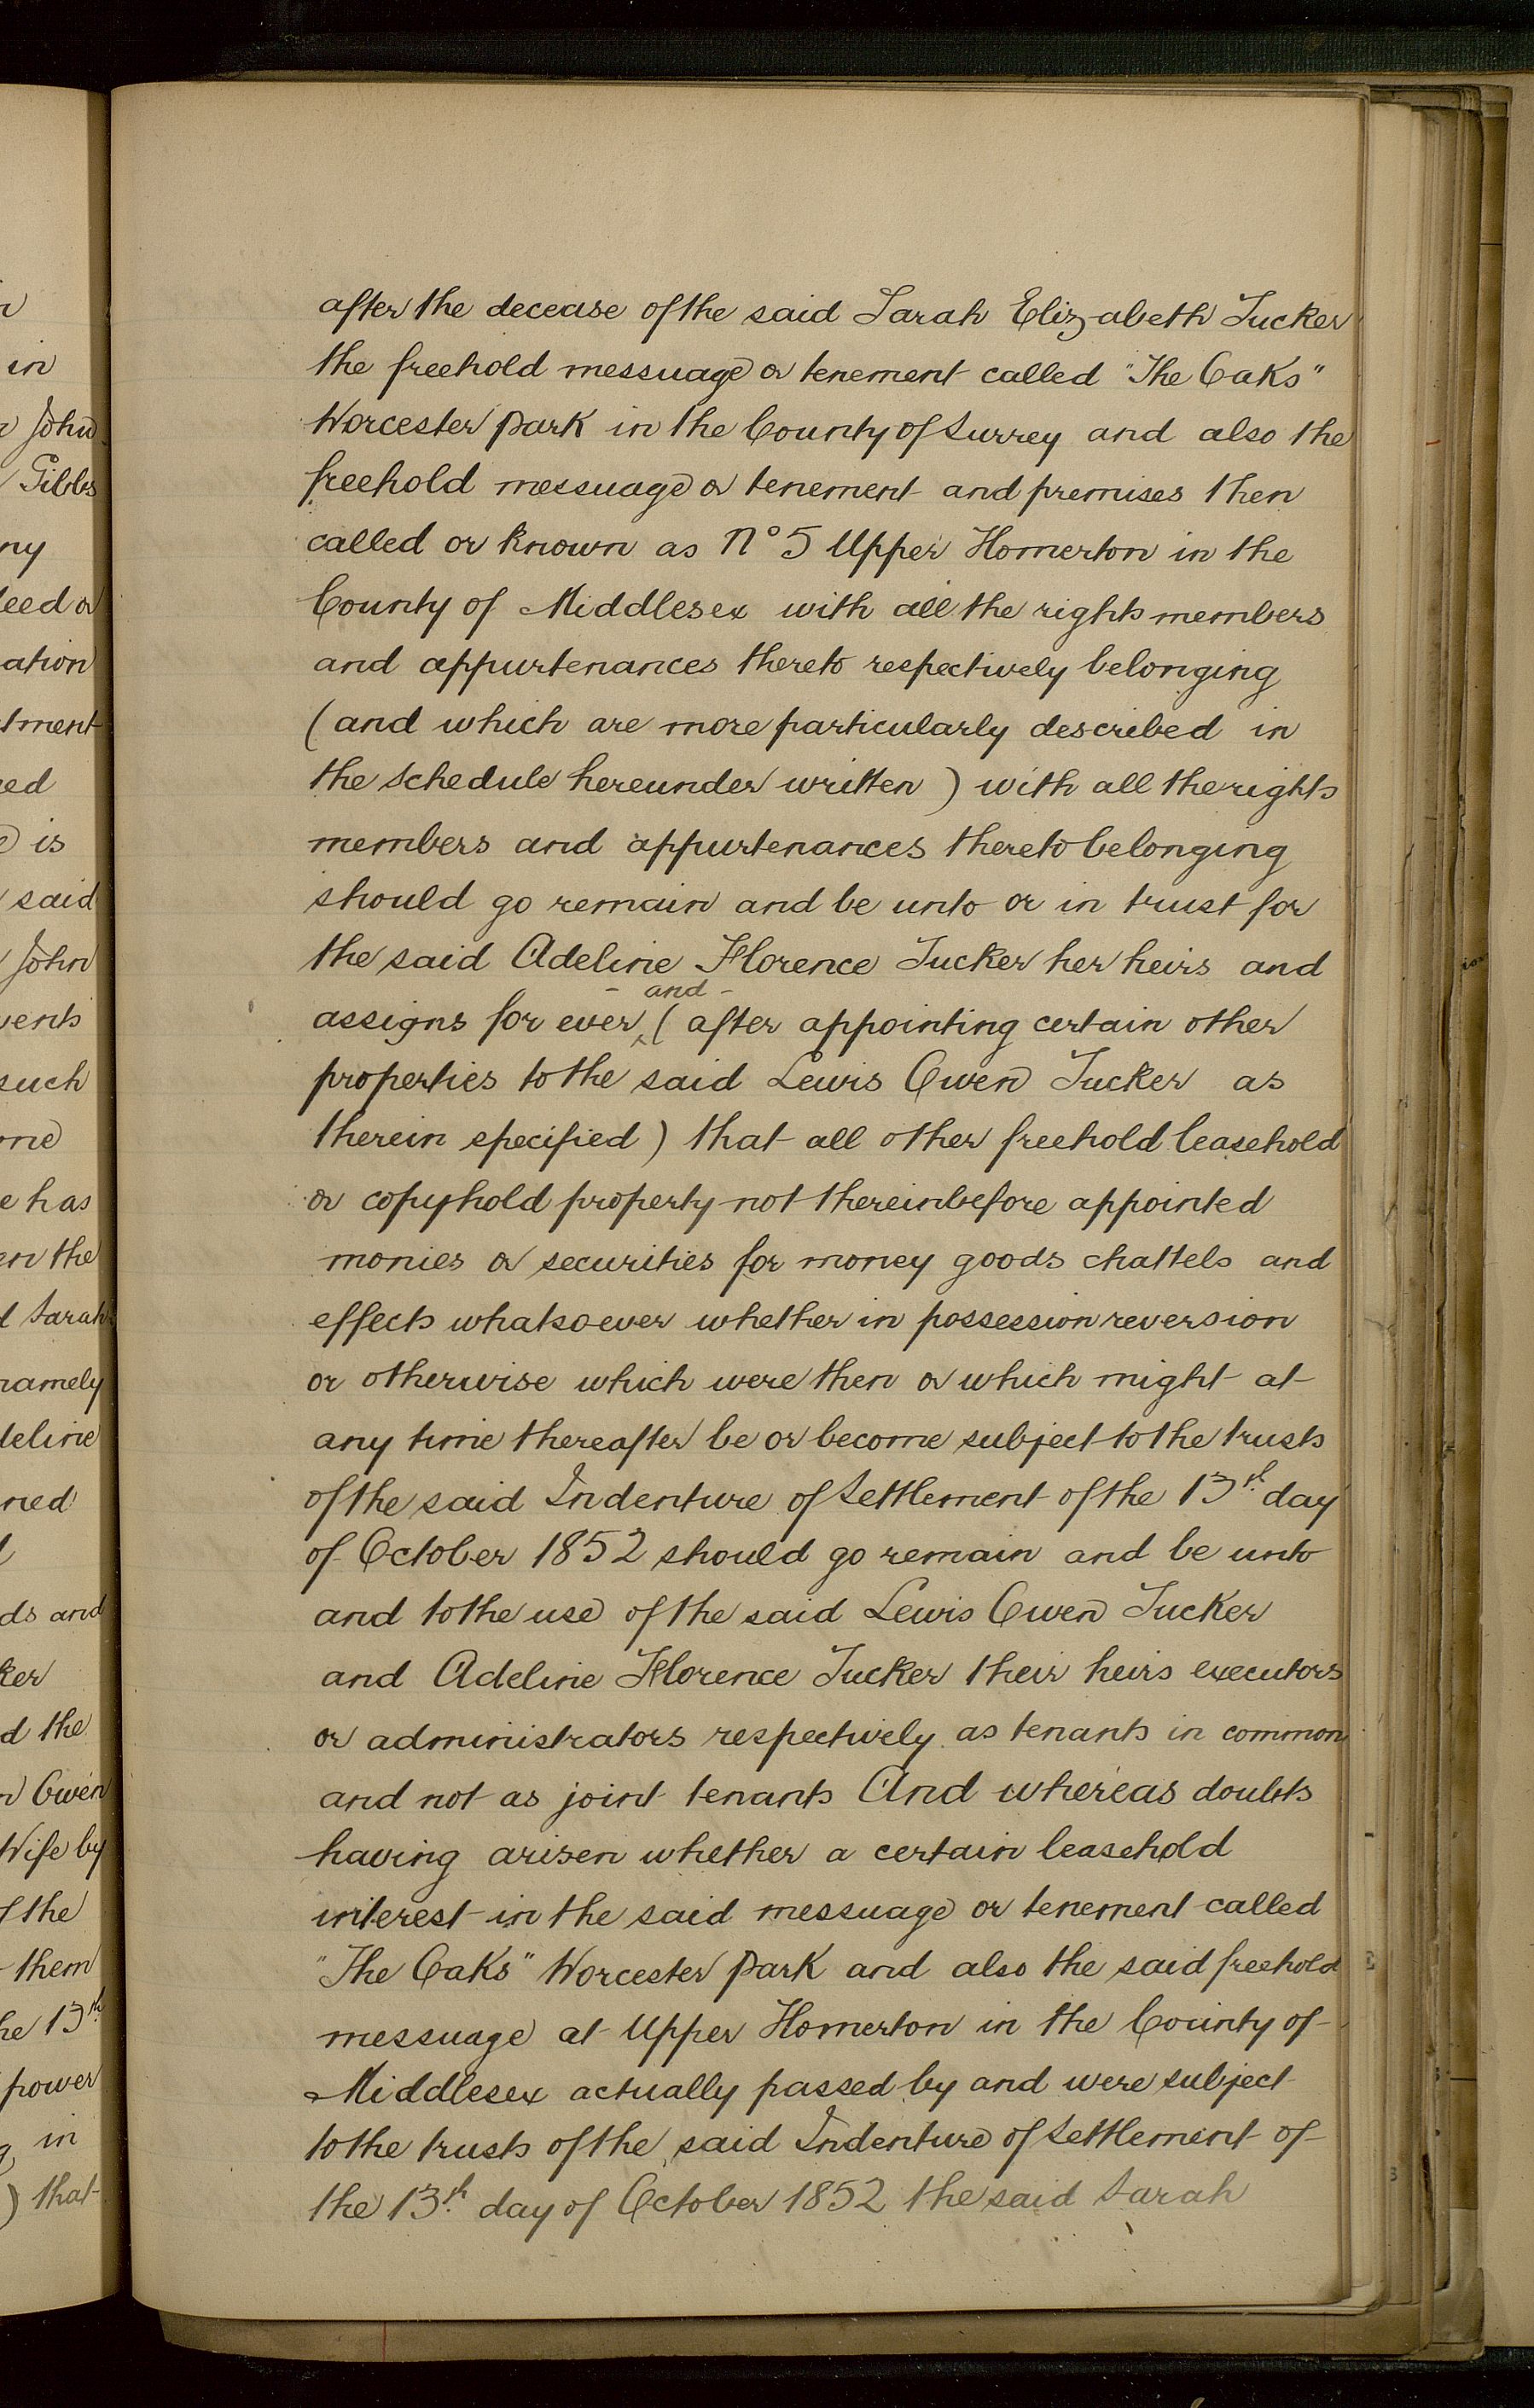 after the decease of the said Sarah Elizabeth Tucker
the freehold messuage or tenement called "The Oaks"
Worcester Park in the County of Surrey and also the
freehold messuage or tenement and premises then
called or known as No 5 Upper Homerton in the
County of Middlesex with all the rights members
and appurtenances thereto respectively belonging
(and which are more particularly described in
the Schedule hereunder written) with all the rights
members and appurtenances thereto belonging
should go remain and be unto or in trust for
the said Adeline Florence Tucker her heirs and
- and -
assigns for ever (after appointing certain other
properties to the said Lewis Owen Tucker as
therein specified) that all other freehold leasehold
or copyhold property not thereinbefore appointed
monies or securities for money goods chattels and
effects whatsoever whether in possession reversion
or otherwise which were then or which might at
any time thereafter be or become subject to the trusts
of the said Indenture of Settlement of the 13th day
of October 1852 should go remain and be unto
and to the use of the said Lewis Owen Tucker
and Adeline Florence Tucker their heirs executors
or administrators respectively as tenants in common
and not as joint tenants And whereas doubts
having arisen whether a certain leasehold
interest in the said messuage or tenement called
"The Oaks" Worcester Park and also the said freehold
messuage at Upper Homerton in the County of
Middlesex actually passed by and were subject
to the trusts of the said Indenture of Settlement of
the 13th day of October 1852 the said Sarah
in
John
Gibbs
is
said
John
such
has
the
Sarah
namely
and
the
Owen
Wife by
the
them
13th
power
in
) that